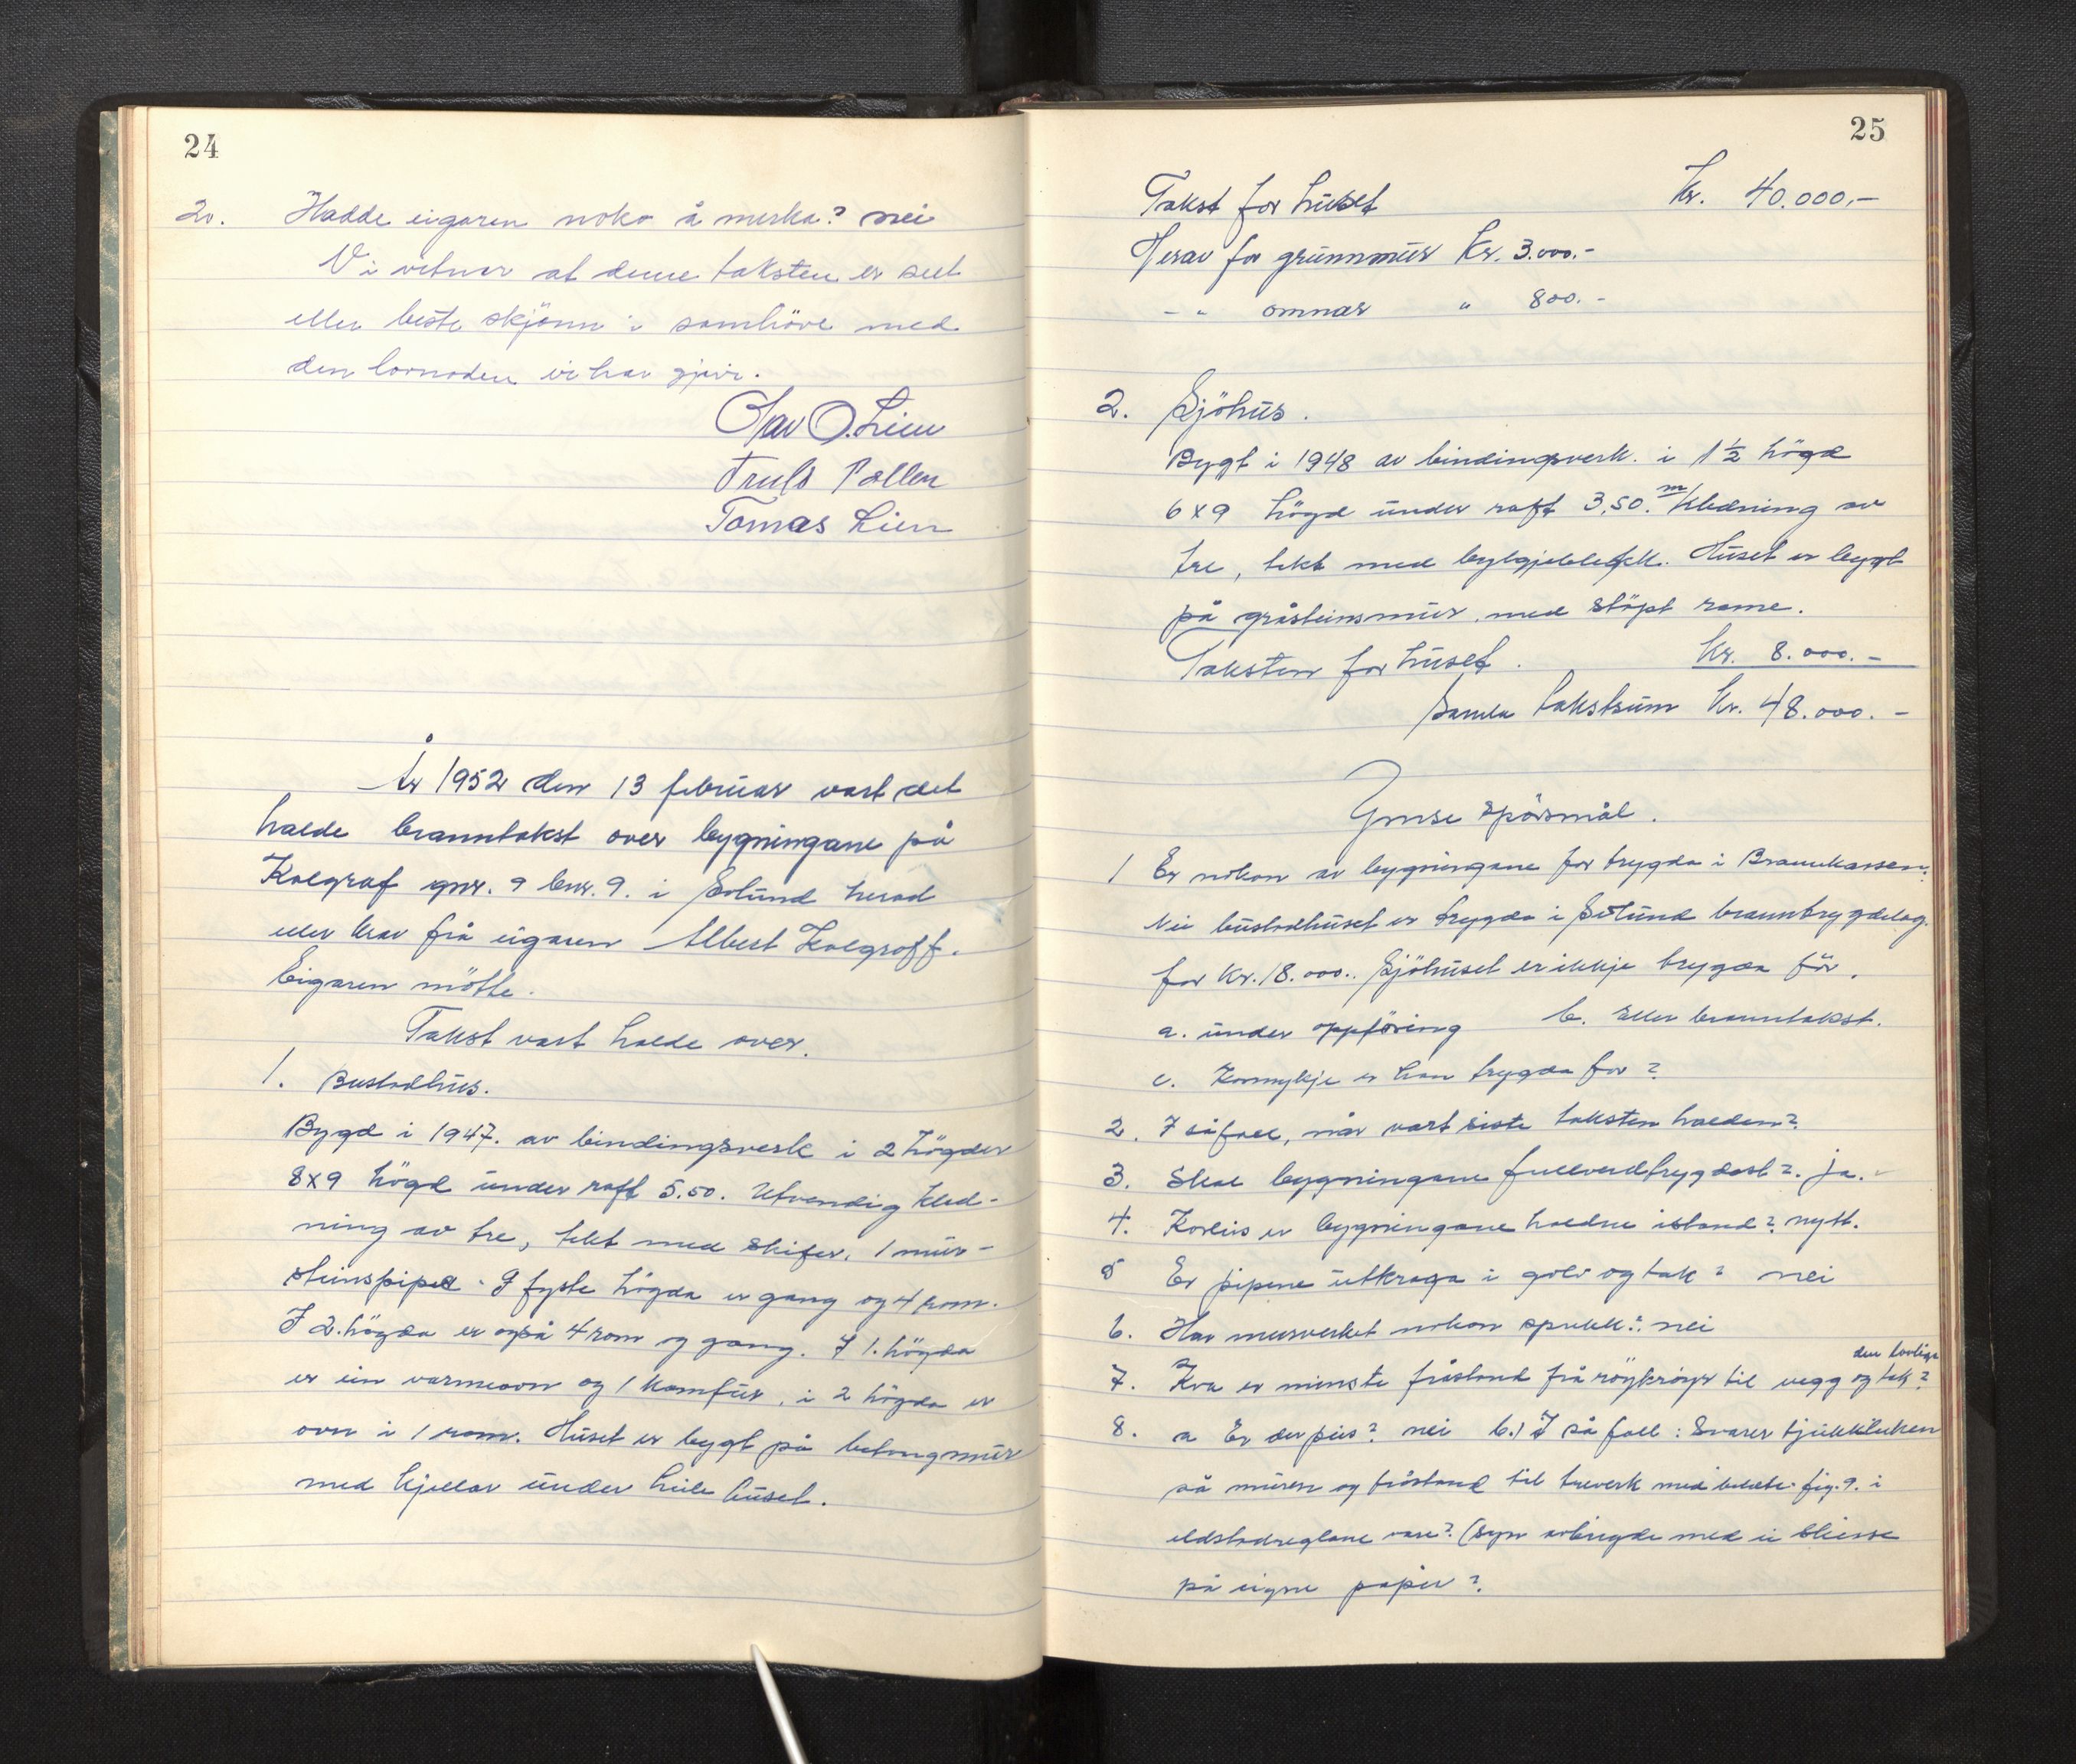 24
20. Hadde eigaren noko å merka? nei
Vi vitnar at denne taksten er sett
etter beste skjönn i samhöve med
den lovnaden vi har gjeve.
Olav O. Lien
Truls Pollen
Tomas Lien
År 1952 den 13 februar vart det
halde branntakst over bygningane på
Kolgraf gnr. 9 bnr. 9. i Sölund herad
etter krav frå eigaren Albert Kolgroff.
Eigaren mötte.
Takst vart halde over.
1. Bustadhus.
Bygd i 1947. av bindingsverk i 2 högder
8x9 högd under raft 5.50. Utvendig kled-
ning av tre, tekt med skifer. 1 mur-
steinspipe. I fyste högda er gang og 4 rom.
I 2. högda er også 4 rom og gang. I 1. högda
er ein varmeovn og 1 komfur, i 2 högda er
ovn i 1 rom. Huset er bygt på betongmur
med kjellar under heile huset.
25
Takst for huset Kr. 40.000,-
Herav for grunnmur Kr. 3.000.-
- " omnar " 800.-
2. Sjöhus.
Bygt i 1948 av bindingsverk. i 1 1/2 högd
6x9 högd under raft 3.50. m/kledning av
tre, tekt med bylgjeblekk. Huset er bygt
på gråsteinsmur. med stöpt rame.
Taksten for huset. Kr. 8.000.-
Samla takstsum Kr. 48.000.-
Ymse spörsmål.
1 Er nokon av bygningane for trygda i Brannkassen?
Nei bustadhuset er trygda i Sölund branntrygdelag.
for Kr. 18.000.. Sjöhuset er ikkje trygda för.
a. under oppföring b. etter branntakst.
c. Kormykje er han trygda for?
2. I såfall, når vart siste taksten halden?
3. Skal bygningane fullverdtrygdast? ja.
4. Korleis er bygningane haldne istand? nytt.
5 Er pipene utkraga i golv og tak? nei
6. Har murverket nokon sprekk? nei
7. Kva er minste fråstand frå röykröyr til vegg og tak? den lovlige
8. a Er der peis? nei b.) I så fall: Svarer tjukkleiken
på muren og fråstand til treverk med fig. 9. i
eldstadreglane (syn avbrigde med ei skisse
på eigne papir?